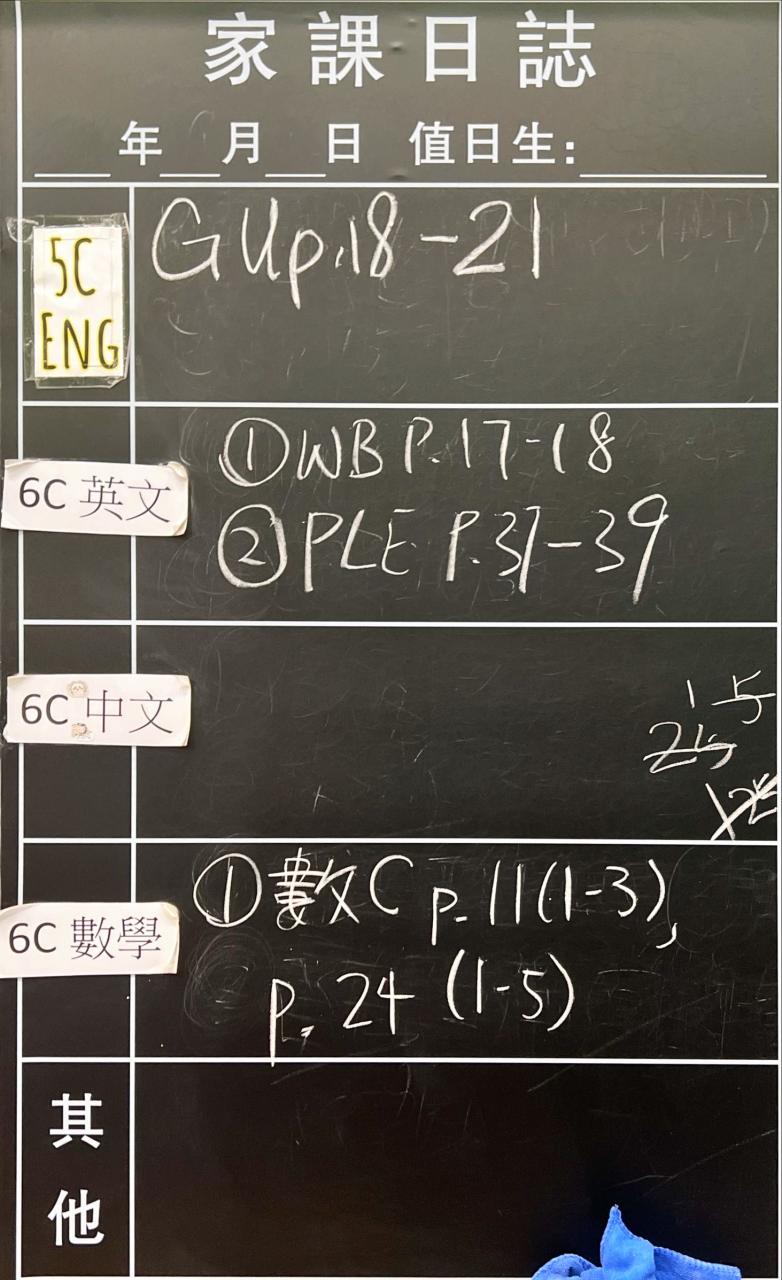 家課日誌
年 月 日 值日生:
5C
ENG
GU p.18-21
6C 英文
①WB P.17-18
②PLE P.37-39
6C 中文
15
25
6C 數學
①數C p.11(1-3),
p.24 (1-5)
其
他